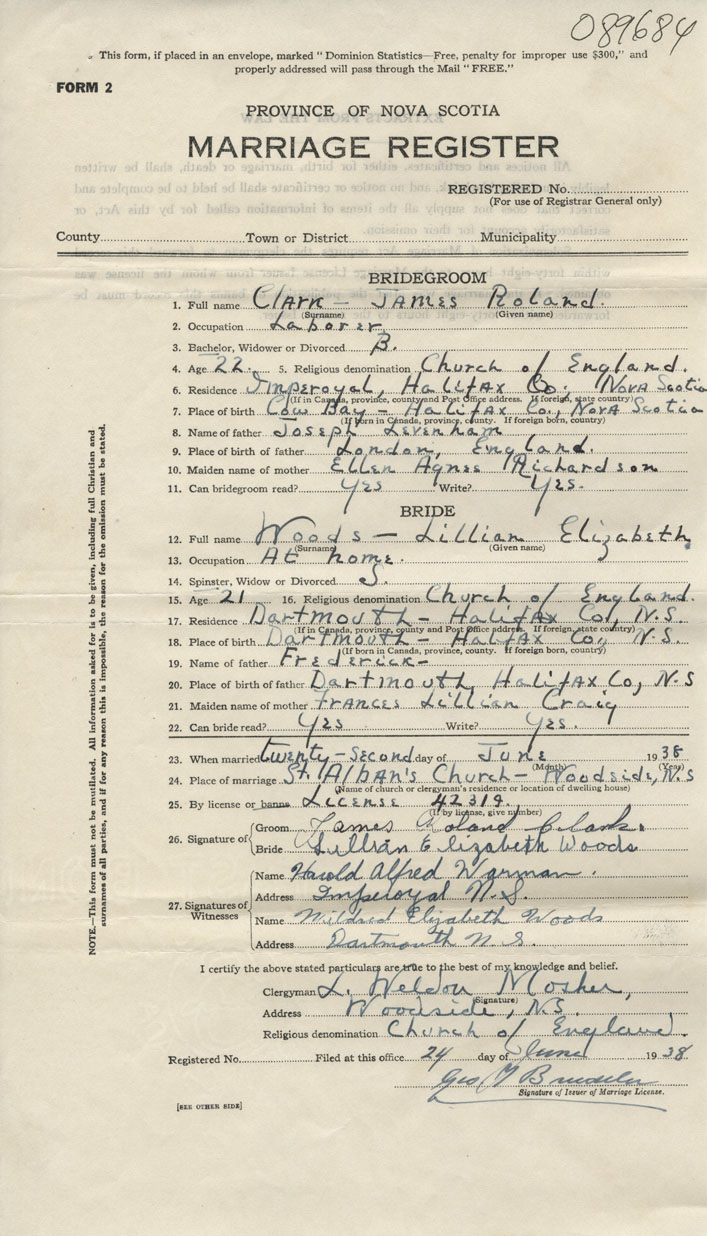 089684
This form, if placed in an envelope, marked " Dominion Statistics—Free, penalty for improper use $300," and
properly addressed will pass through the Mail " FREE."
FORM 2
PROVINCE OF NOVA SCOTIA
MARRIAGE REGISTER
REGISTERED No.
(For use of Registrar General only)
County Town or District Municipality
BRIDEGROOM
1. Full name Clark – James Roland.
(Surname) (Given name)
2. Occupation Laborer
3. Bachelor, Widower or Divorced B.
4. Age 22. 5. Religious denomination Church of England.
6. Residence Imperoyal, Halifax Co. Nova Scotia
(If in Canada, province, county and Post Office address. If foreign, state country)
7. Place of birth Cow Bay – Halifax Co., Nova Scotia
(If born in Canada, province, county. If foreign born, country)
8. Name of father Joseph Levenham
9. Place of birth of father London, England.
10. Maiden name of mother Ellen Agnes Richardson
11. Can bridegroom read? Yes Write? Yes.
BRIDE
12. Full name Woods – Lillian Elizabeth
(Surname) (Given name)
13. Occupation At home.
14. Spinster, Widow or Divorced S.
15. Age 21 16. Religious denomination Church of England.
17. Residence Dartmouth – Halifax Co., N.S.
(If in Canada, province, county and Post Office address. If foreign, state country)
18. Place of birth Dartmouth – Halifax Co., N.S.
(If born in Canada, province, county. If foreign born, country)
19. Name of father Frederick –
20. Place of birth of father Dartmouth, Halifax Co, N.S
21. Maiden name of mother Frances Lillian Craig
22. Can bride read? Yes Write? Yes.
23. When married twenty-second day of June 1938
(Month) (Year)
24. Place of marriage St. Alban's Church – Woodside, N.S
(Name of church or clergyman's residence or location of dwelling house)
25. By license or banns License 42319.
(If by license, give number)
26. Signature of
Groom James Roland Clark.
Bride Lillian Elizabeth Woods
27. Signatures of Witnesses
Name Harold Alfred Warman.
Address Imperoyal N.S.
Name Mildred Elizabeth Woods
Address Dartmouth N S.
I certify the above stated particulars are true to the best of my knowledge and belief.
Clergyman L. Weldon Mosher,
(Signature)
Address Woodside, N.S.
Religious denomination Church of England.
Registered No. Filed at this office 24 day of June 1938
Geo
Signature of Issuer of Marriage License.
[SEE OTHER SIDE]
NOTE.—This form must not be mutilated. All information asked for is to be given, including full Christian and
surnames of all parties, and if for any reason this is impossible, the reason for the omission must be stated.